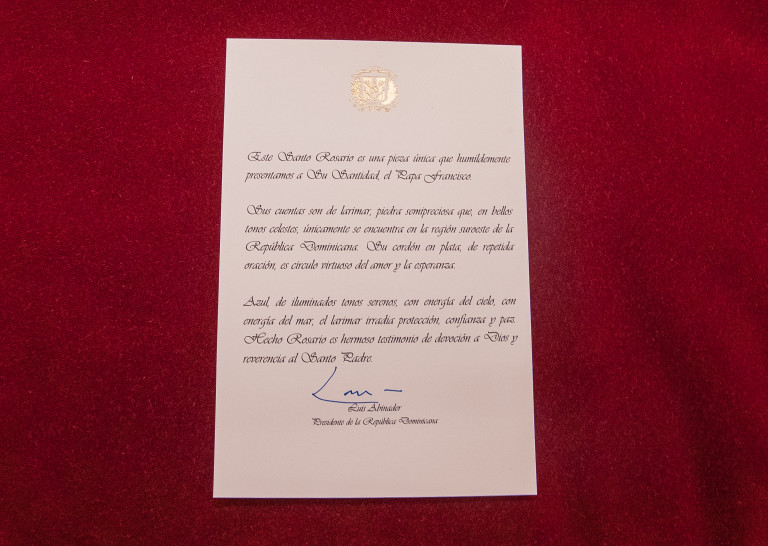 Este Santo Rosario es una pieza única que humildemente
presentamos a Su Santidad, el Papa Francisco.
Sus cuentas son de larimar, piedra semipreciosa que, en bellos
tonos celestes, únicamente se encuentra en la región suroeste de la
República Dominicana. Su cordón en plata, de repetida
oración, es círculo virtuoso del amor y la esperanza.
Azul, de iluminados tonos serenos, con energía del cielo, con
energía del mar, el larimar irradia protección, confianza y paz.
Hecho Rosario es hermoso testimonio de devoción a Dios y
reverencia al Santo Padre.
Luis Abinader
Presidente de la República Dominicana